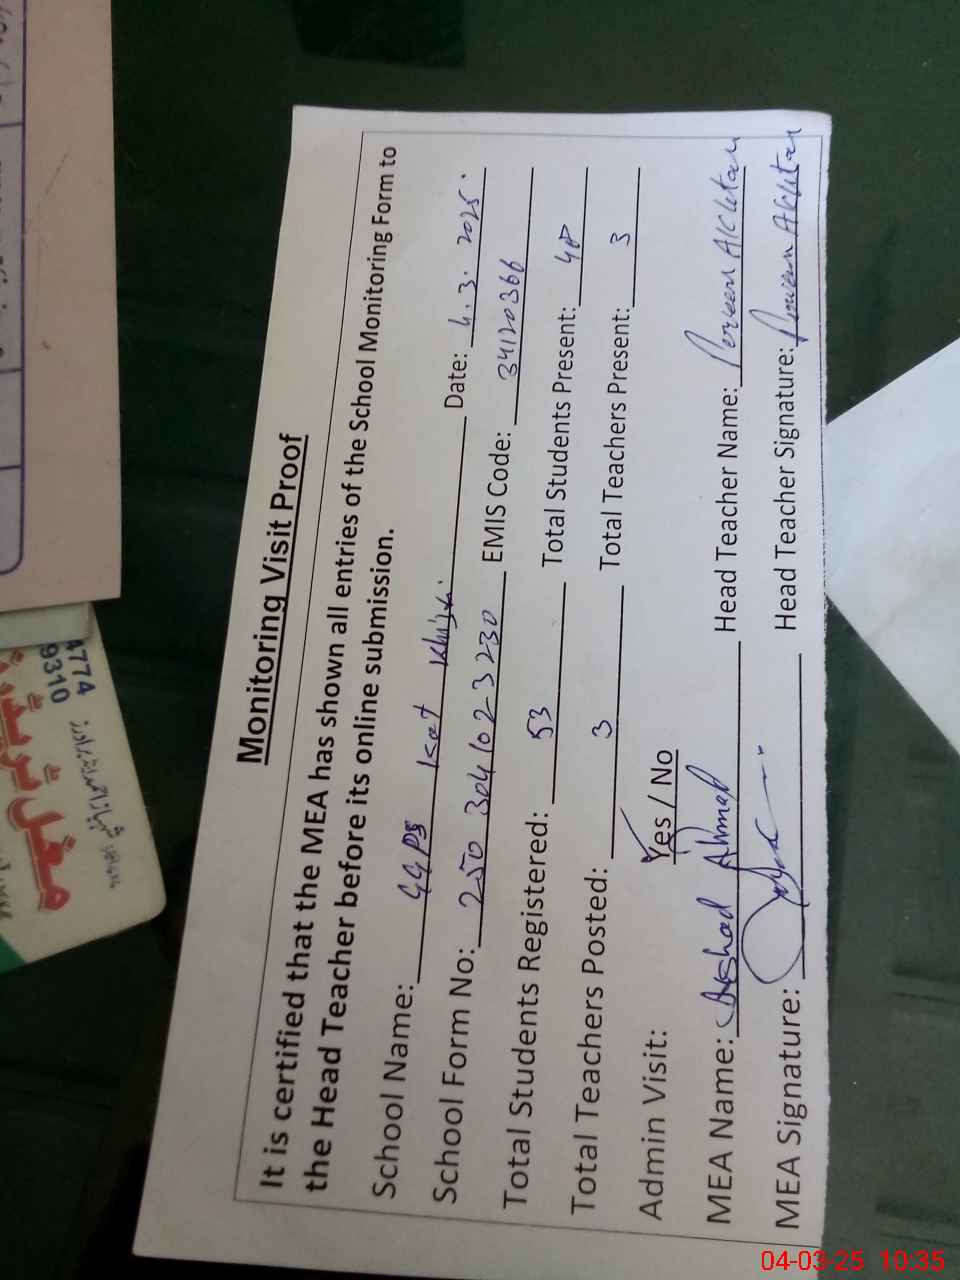 Monitoring Visit Proof
It is certified that the MEA has shown all entries of the School Monitoring Form to
the Head Teacher before its online submission.
School Name: GGPS Kot Date: 4.3.2025.
School Form No: 250 304 1023230 EMIS Code: 34120366
Total Students Registered: 53 Total Students Present: 48
Total Teachers Posted: 3 Total Teachers Present: 3
Admin Visit: Yes / No
MEA Name: Arshad Ahmed Head Teacher Name: Perveen Akhtar
MEA Signature: Head Teacher Signature: Perveen Akhtar
4774
9310
04-03-25 10:35